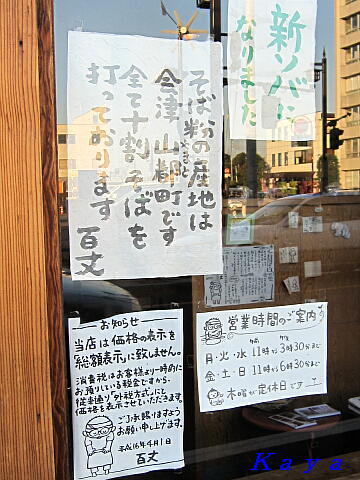 新ソバに
なりました
そば粉の産地は
会津 山都町です
やまと
全て十割そばを
打っております
百丈
お知らせ
当店は価格の表示を
「総額表示」に致しません。
消費税はお客様より一時的に
お預りしている税金ですから、
従来通り“外税方式”にて
価格を表示させていただきます。
ご了承賜りますよう
お願い申し上げます。
平成16年4月1日
百丈
営業時間のご案内
月・火・水 11時から3時30分まで
金・土・日 11時から6時30分まで
木曜が定休日です
Kaya